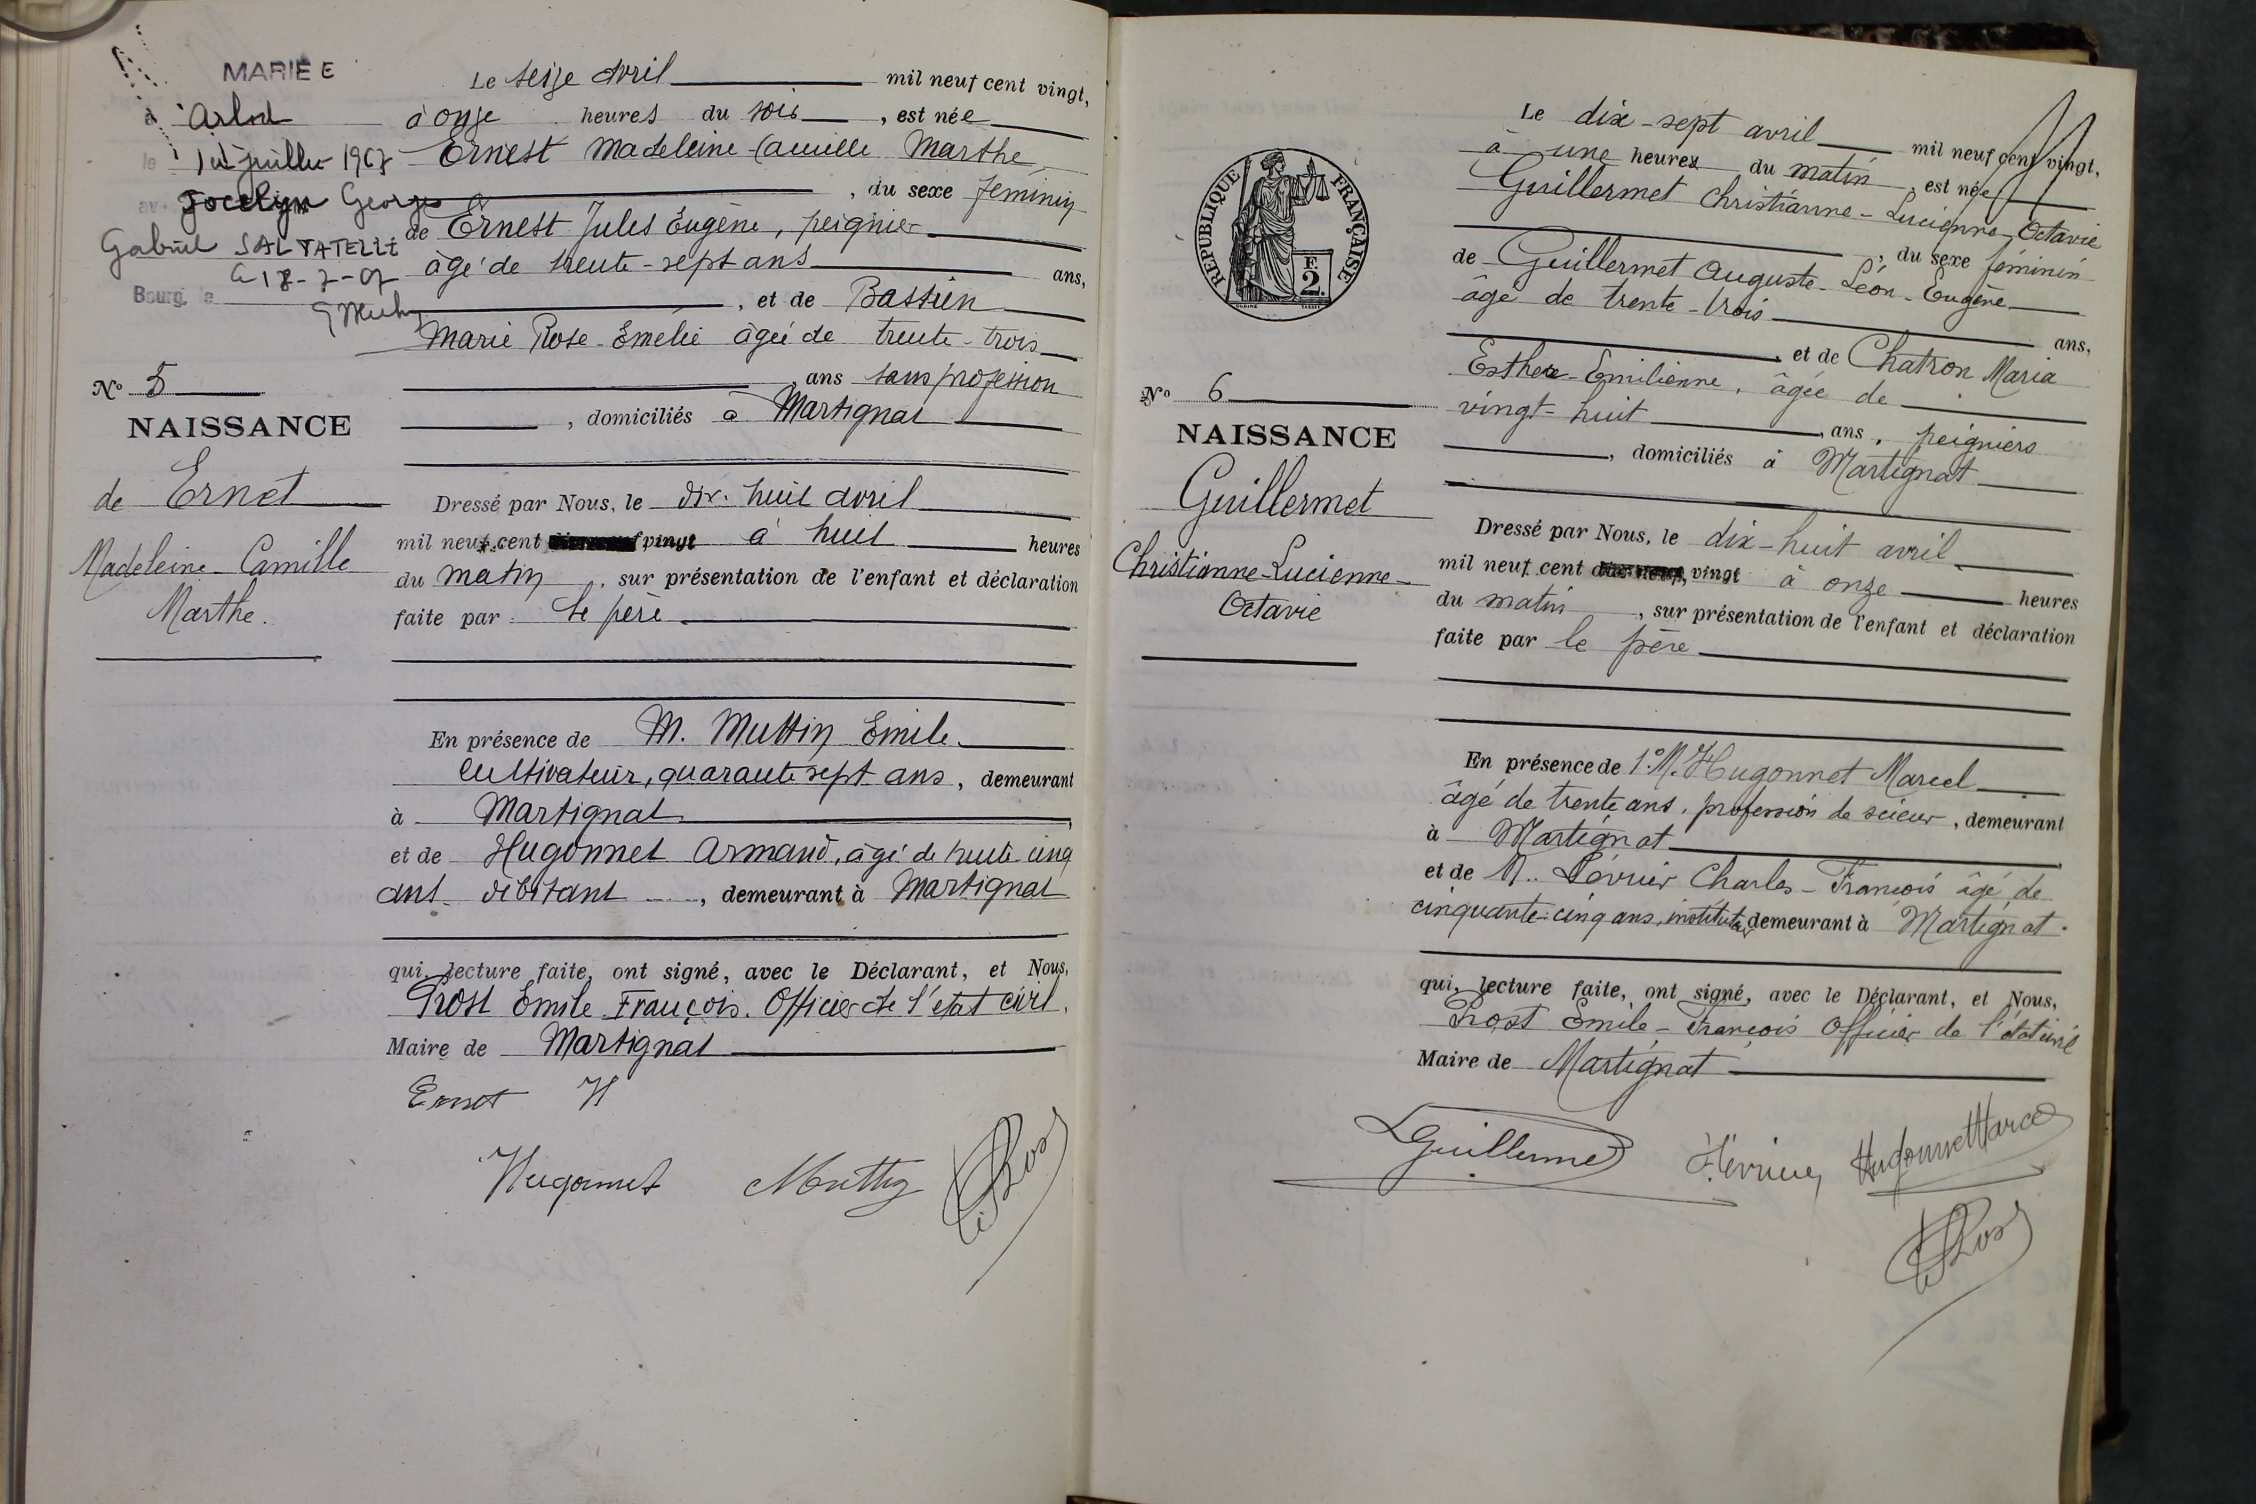 MARIÉE
à Arlod
le 1er juillet 1967
av. Jocelyn Georges
Gabriel SALVATELLI
Le 18-7-67
Bourg, le
Le seize avril mil neuf cent vingt,
à onze heures du soir, est née
Ernest Madeleine-Camille Marthe
, du sexe féminin
de Ernest Jules Eugène, peignier
âgé de trente-sept ans ans,
, et de Bastien
Marie Rose-Emelie âgée de trente-trois
, ans sans profession
, domiciliés à Martignat
N° 5
NAISSANCE
de Ernet
Madeleine-Camille
Marthe.
Dressé par Nous, le dix-huit avril
mil neuf cent vingt à huit heures
du matin, sur présentation de l'enfant et déclaration
faite par le père
En présence de M. Muttin Emile
cultivateur, quarante sept ans, demeurant
à Martignat
et de Hugonnet Armand, âgé de trente cinq
ans débitant, demeurant à Martignat
qui, lecture faite, ont signé, avec le Déclarant, et Nous,
Prost Emile François. Officier de l'état civil,
Maire de Martignat
Ernet
Hugonnet Muttin Prost
Le dix-sept avril mil neuf cent vingt,
à une heures du matin, est née
Guillermet Christianne-Lucienne-Octavie
, du sexe féminin
de Guillermet Auguste-Léon-Eugène
âgé de trente-trois ans,
, et de Chatron Maria
Esther-Emilienne, âgée de
vingt-huit, ans, peigniers
, domiciliés à Martignat
REPUBLIQUE FRANÇAISE
F.
2.
N° 6
NAISSANCE
Guillermet
Christianne-Lucienne-
Octavie
Dressé par Nous, le dix-huit avril
mil neuf cent vingt à onze heures
du matin, sur présentation de l'enfant et déclaration
faite par le père
En présence de 1° M. Hugonnet Marcel
âgé de trente ans, profession de scieur, demeurant
à Martignat
et de M. Février Charles-François âgé de
cinquante-cinq ans, instituteur demeurant à Martignat.
qui, lecture faite, ont signé, avec le Déclarant, et Nous,
Prost Emile-François Officier de l'état civil
Maire de Martignat
LGuillermet Février Hugonnet Marcel
Prost